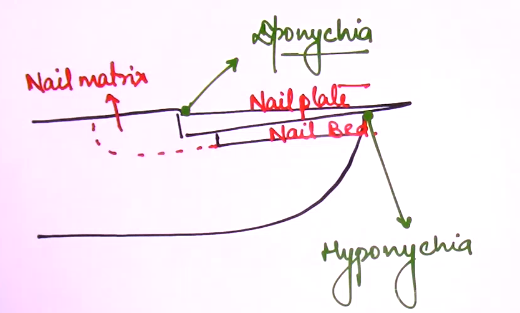 Eponychia
Nail matrix
Nail plate
Nail Bed
Hyponychia